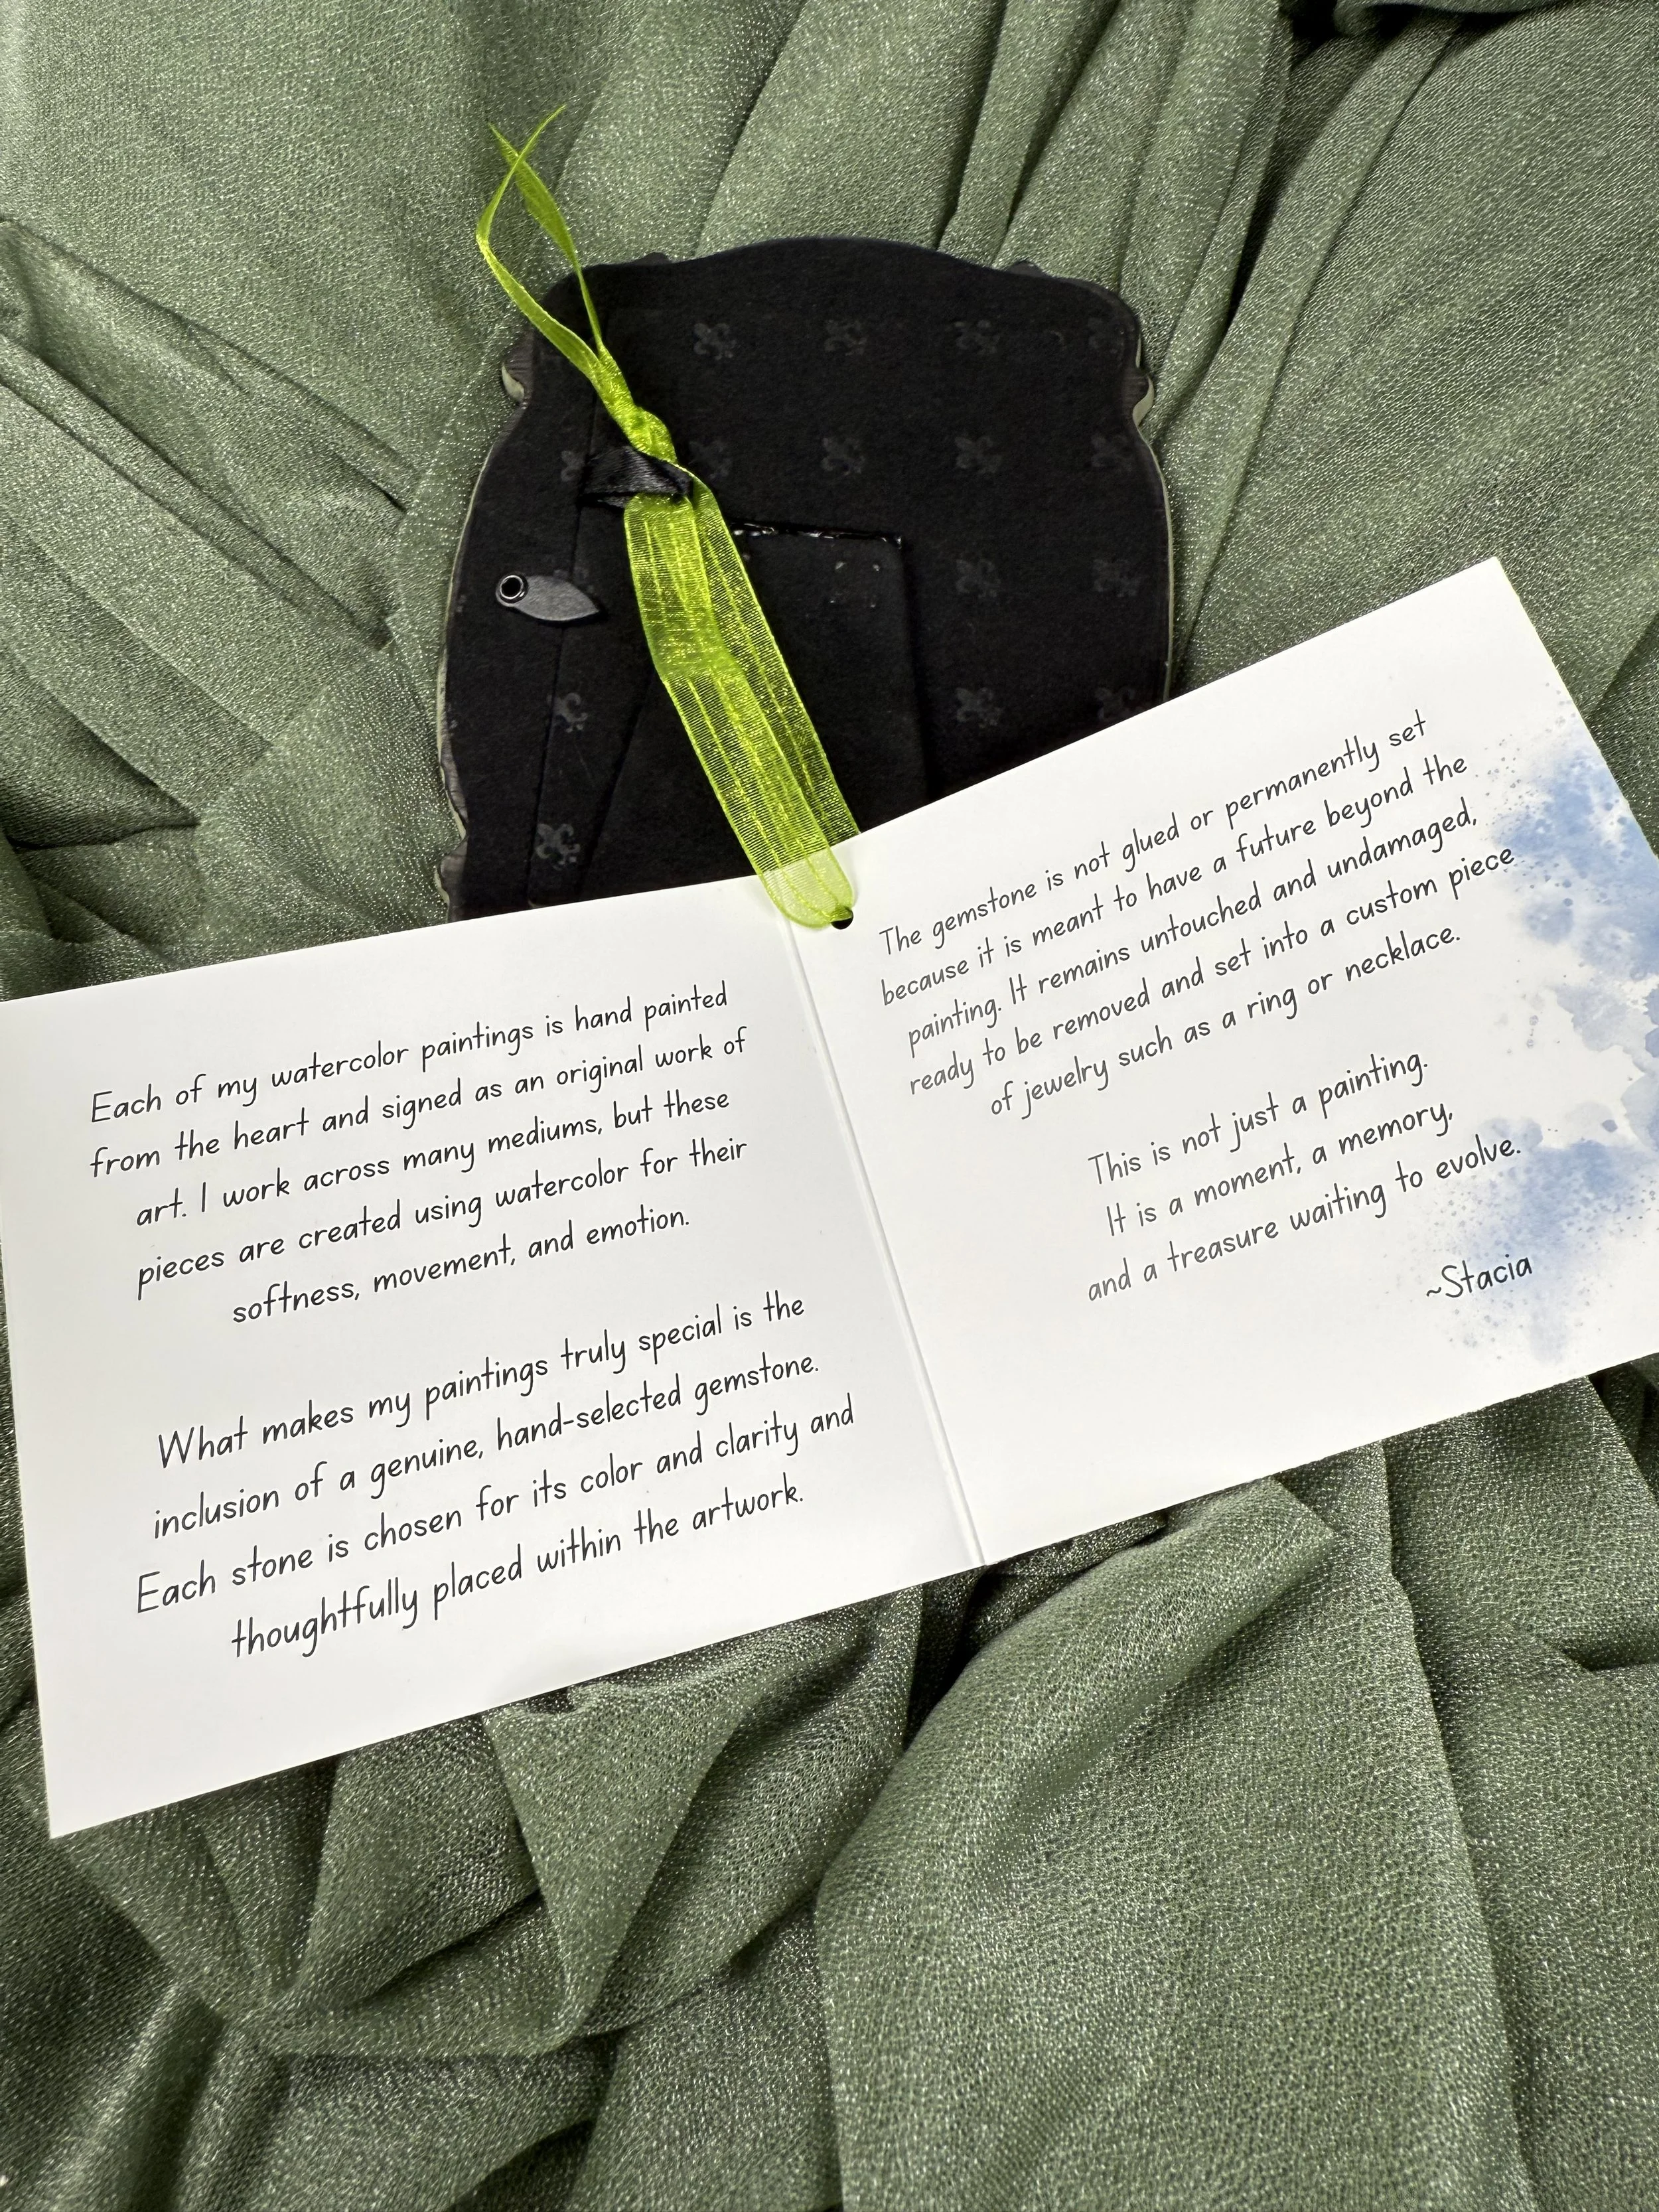 Each of my watercolor paintings is hand painted
from the heart and signed as an original work of
art. I work across many mediums, but these
pieces are created using watercolor for their
softness, movement, and emotion.
What makes my paintings truly special is the
inclusion of a genuine, hand-selected gemstone.
Each stone is chosen for its color and clarity and
thoughtfully placed within the artwork.
The gemstone is not glued or permanently set
because it is meant to have a future beyond the
painting. It remains untouched and undamaged,
ready to be removed and set into a custom piece
of jewelry such as a ring or necklace.
This is not just a painting.
It is a moment, a memory,
and a treasure waiting to evolve.
~Stacia